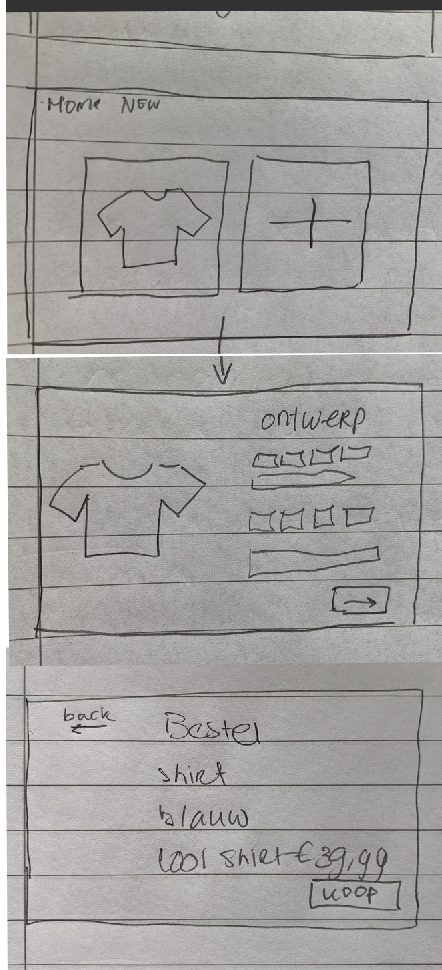 Home New
ontwerp
back
Bestel
shirt
blauw
cool shirt €39,99
koop